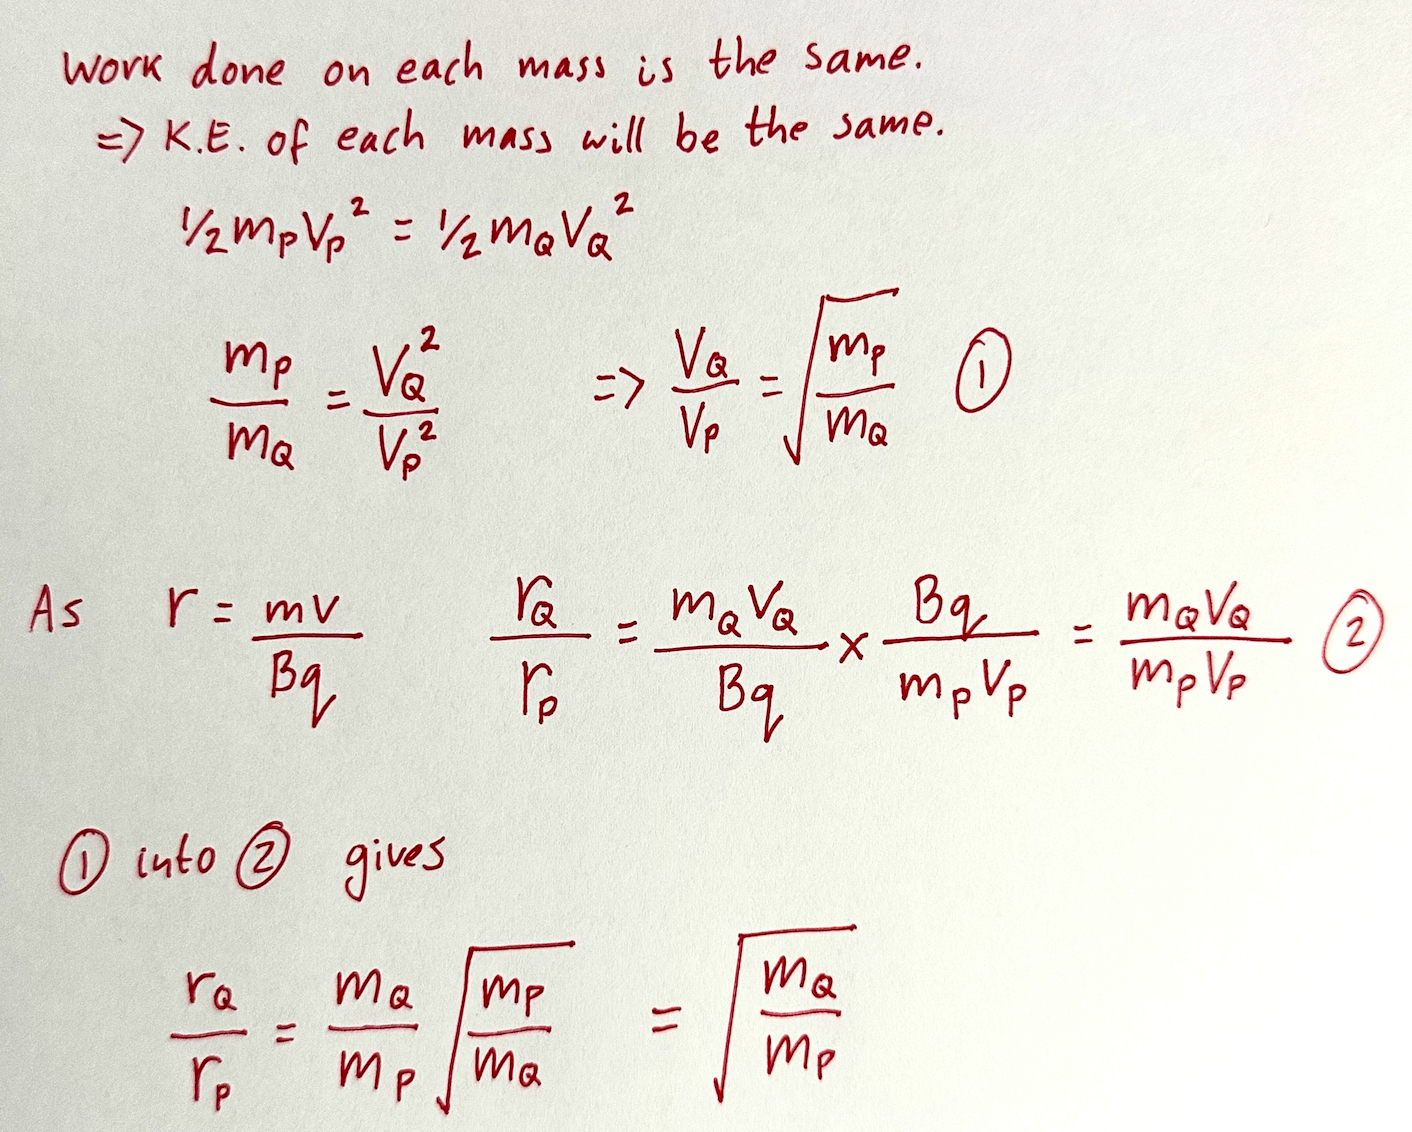 Work done on each mass is the same.
=> K.E. of each mass will be the same.
1/2 m_P V_P^2 = 1/2 m_Q V_Q^2
m_P/m_Q = V_Q^2/V_P^2 => V_Q/V_P = √(m_P/m_Q) ①
As r = mv/Bq r_Q/r_P = m_Q V_Q/Bq × Bq/m_P V_P = m_Q V_Q/m_P V_P ②
① into ② gives
r_Q/r_P = m_Q/m_P √(m_P/m_Q) = √(m_Q/m_P)